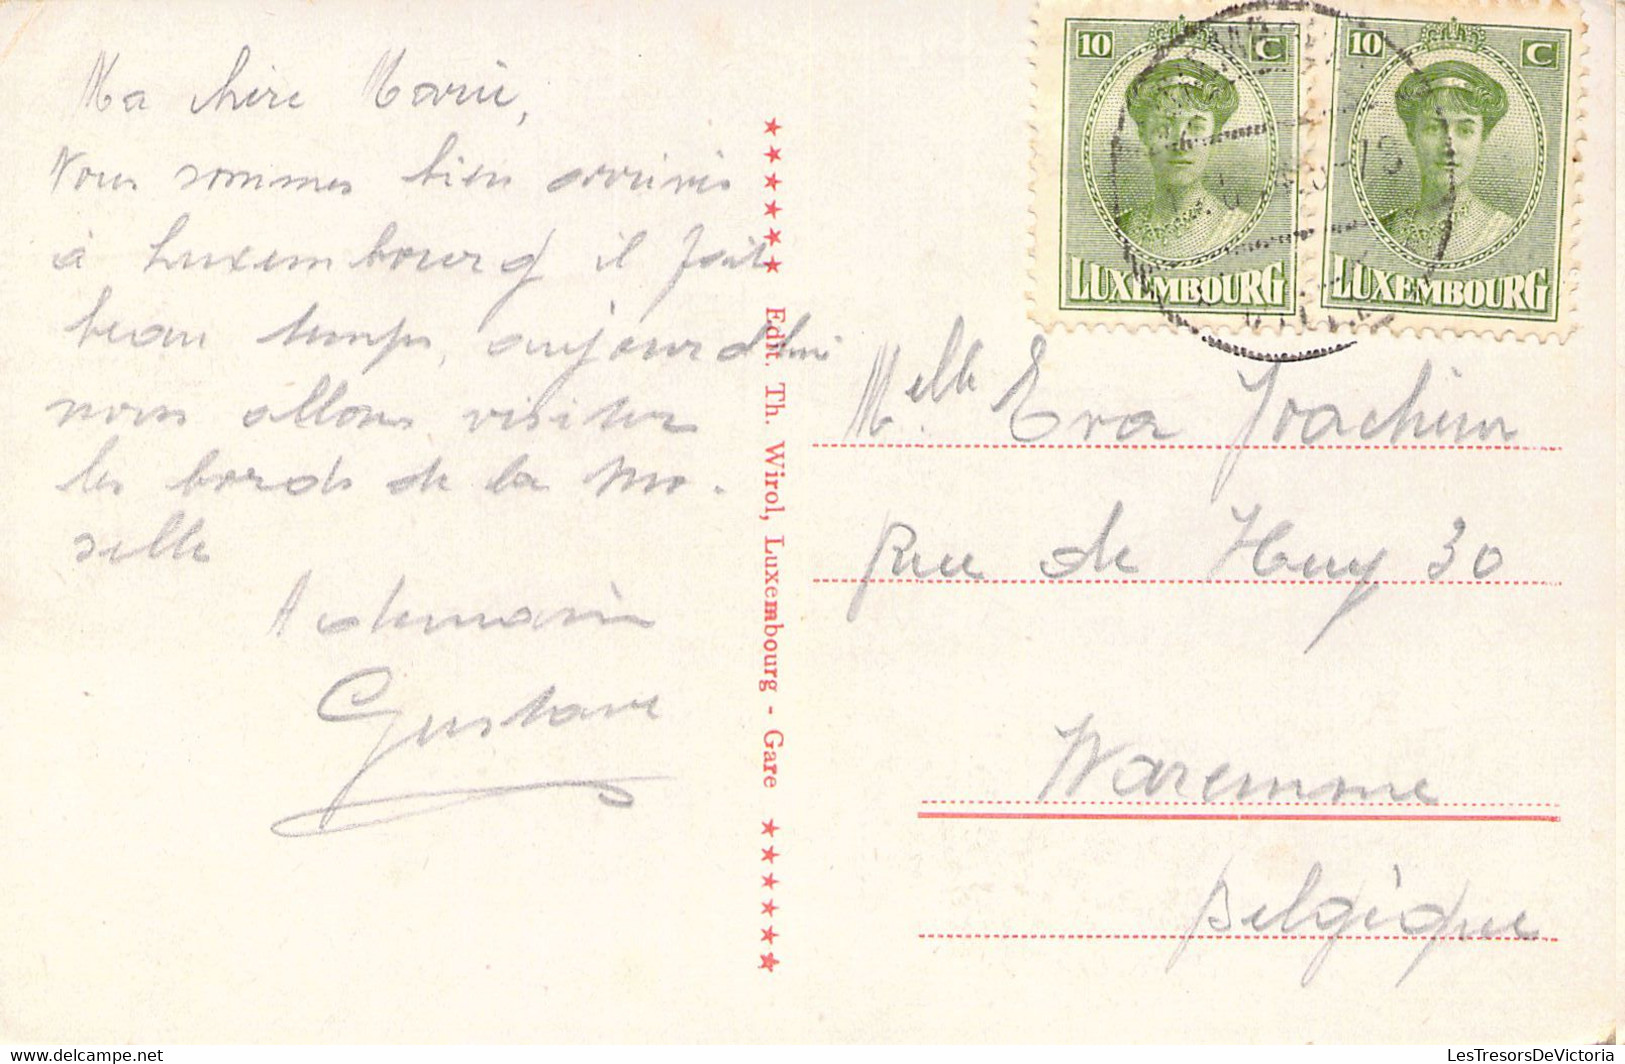 Ma chère Marie,
Nous sommes bien arrivés
à Luxembourg il fait
beau temps, aujourd'hui
nous allons visiter
les bords de la Mo-
selle
Gustave
★★★★★★ Edit. Th. Wirol, Luxembourg - Gare ★★★★★★
10 C
LUXEMBOURG
10 C
LUXEMBOURG
Melle Eva Joachim
Rue de Huy 30
Waremme
Belgique
LesTresorsDeVictoria